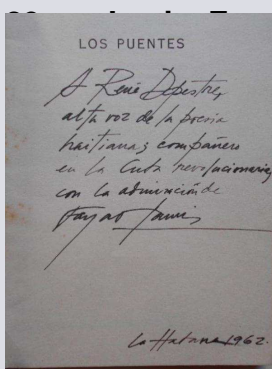 LOS PUENTES
A René Depestre,
alta voz de la poesía
haitiana y compañero
en la Cuba revolucionaria,
con la admiración de
Fayad Jamís
La Habana 1962.